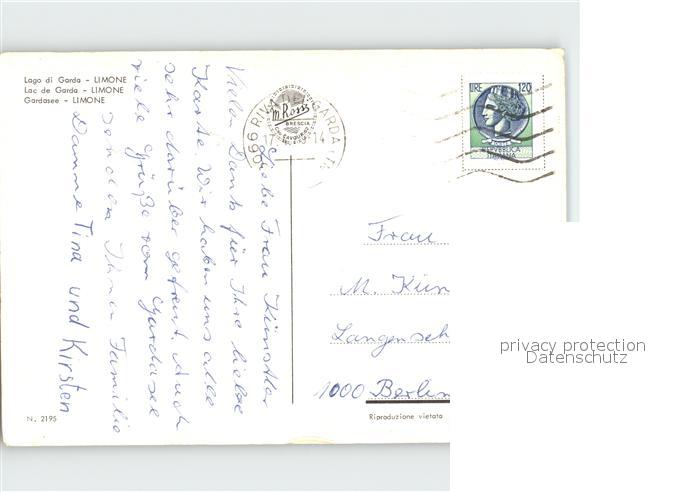 Lago di Garda - LIMONE
Lac de Garda - LIMONE
Gardasee - LIMONE
Liebe Frau Künstler
Vielen Dank für Ihre liebe
Karte. Wir haben uns alle
sehr darüber gefreut. Auch
viele Grüße vom Gardasee
senden Ihnen Familie
Danne Tina und Kirsten
m. Rossi
BRESCIA
RIVA DEL GARDA (TN)
LIRE 120
REPVBBLICA
ITALIANA
Frau
M. Kün
Langensch
1000 Berlin
N. 2195
Riproduzione vietata
privacy protection
Datenschutz